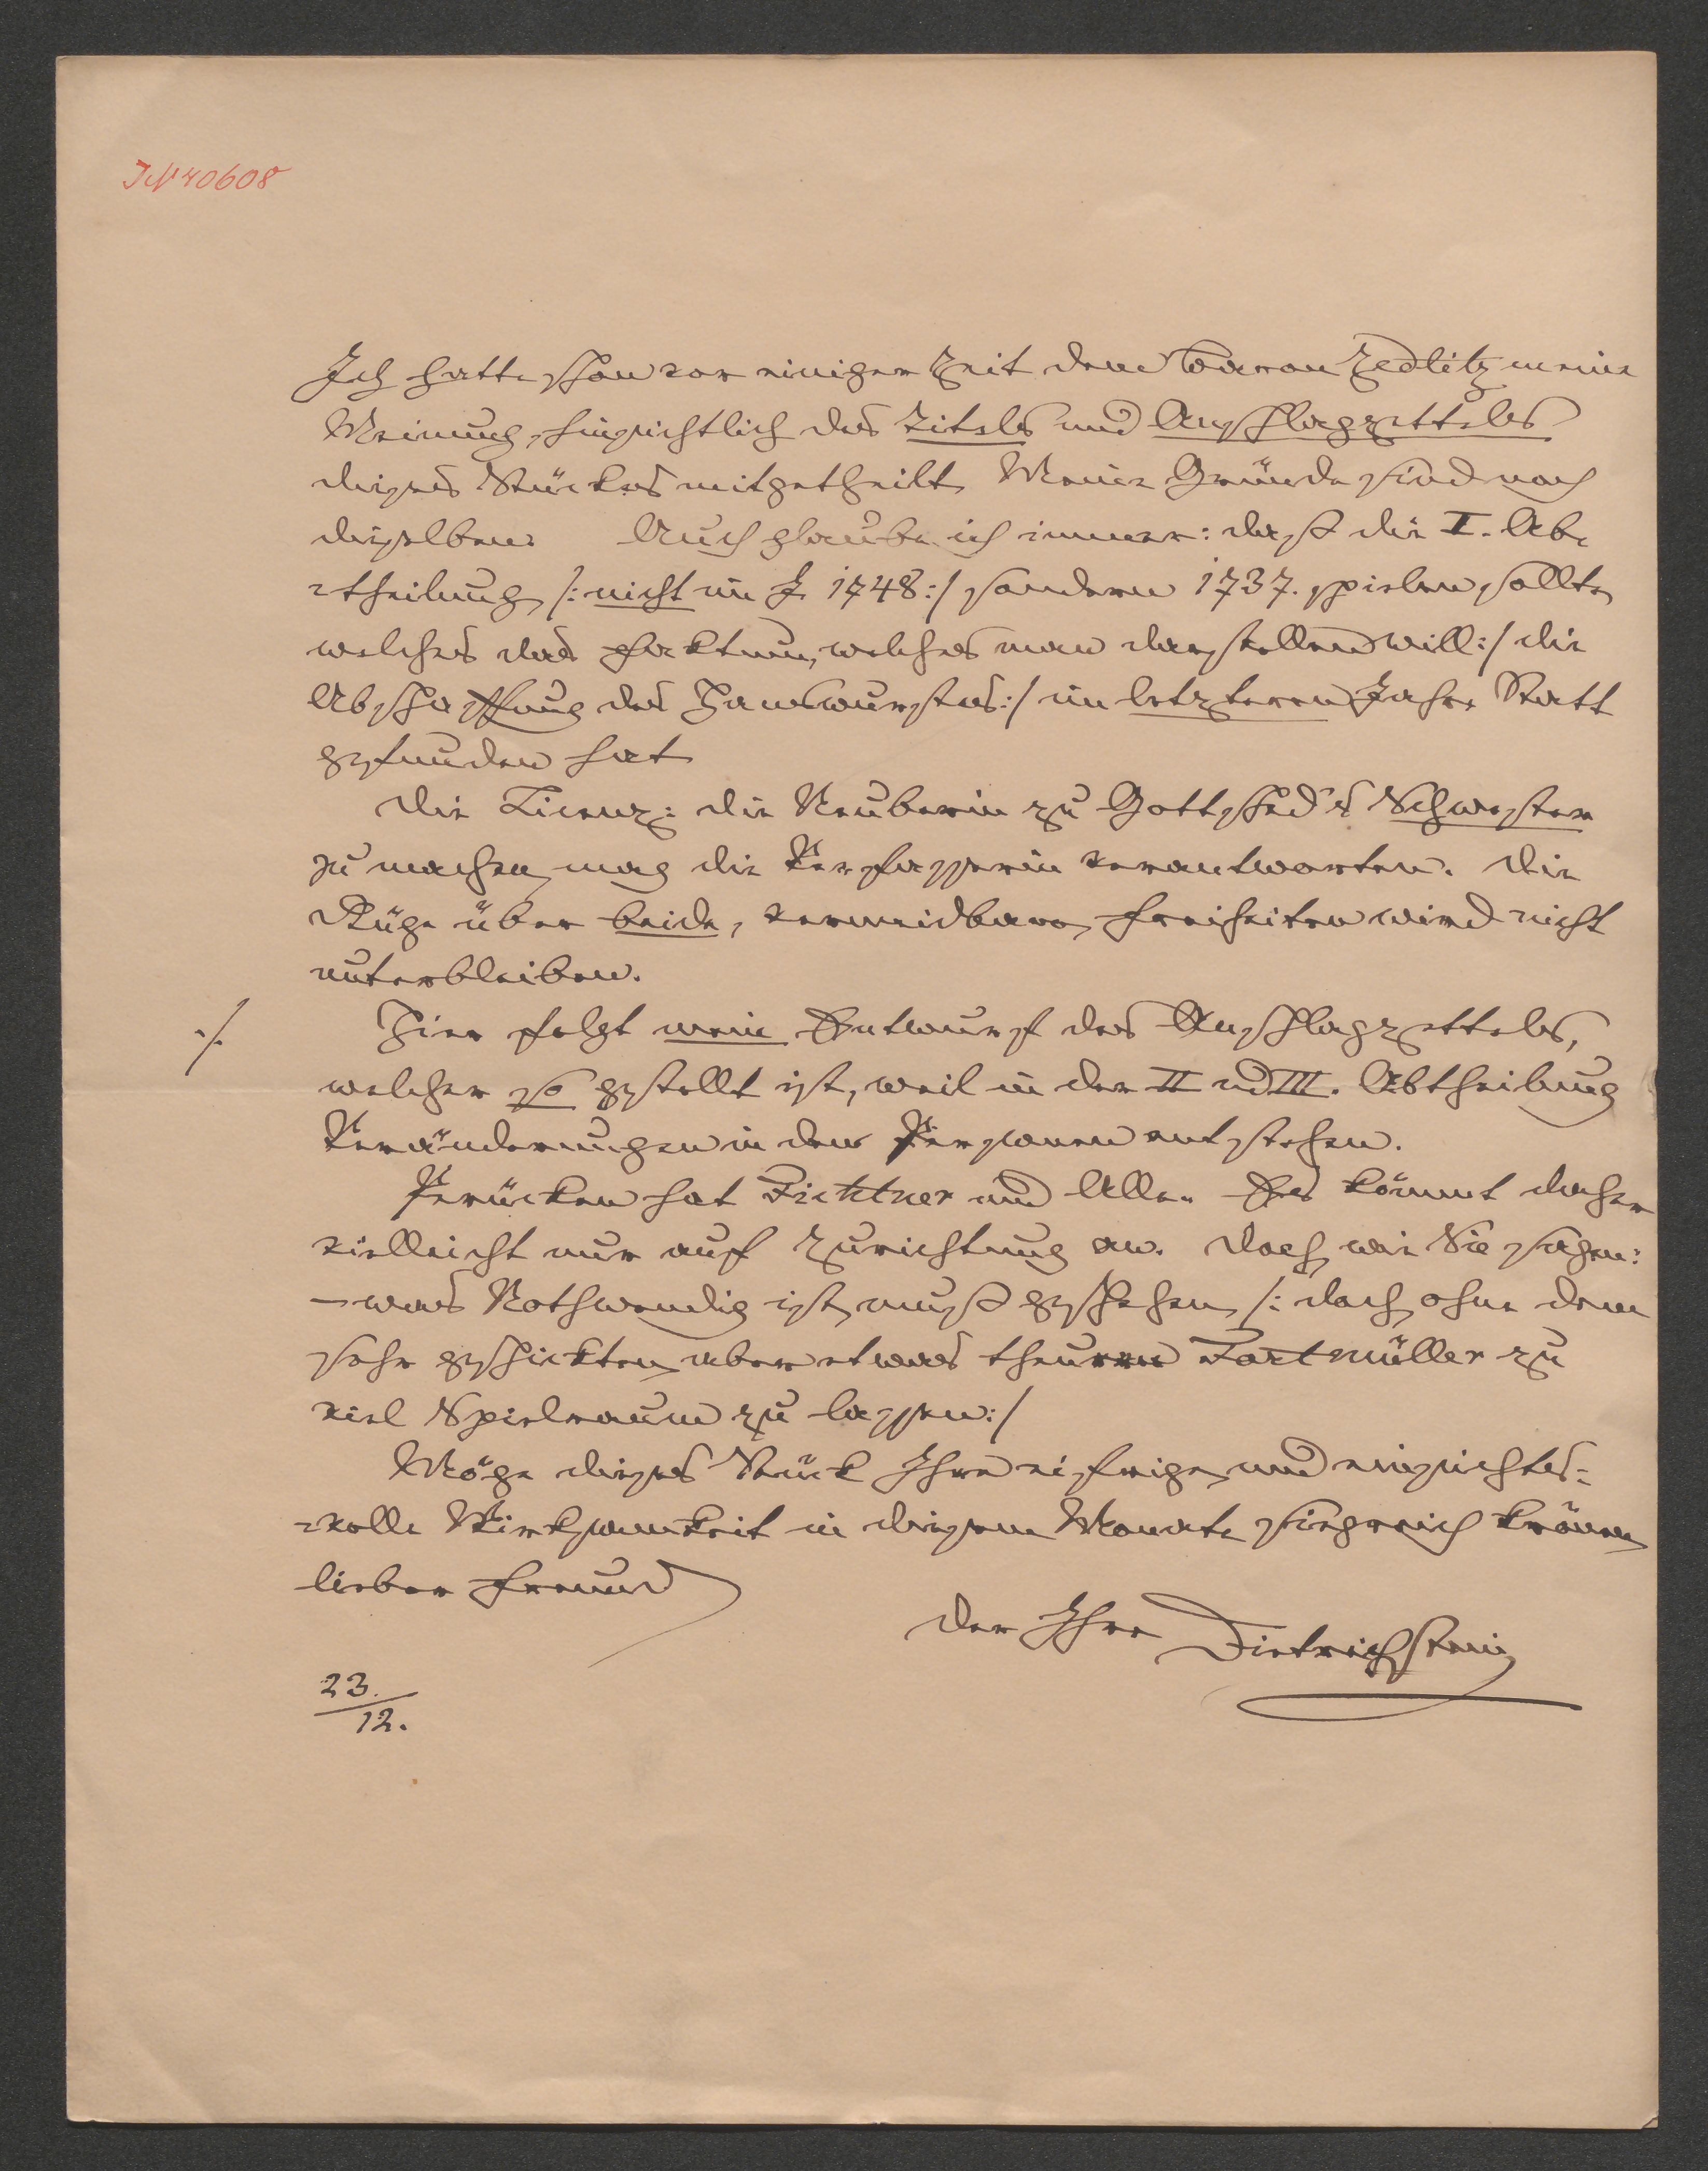 JN 40608
Ich hatte schon vor einiger Zeit dem Baron Zedlitz meine
Meinung, hinsichtlich des Titels und Anschlagzettels
dieses Stückes mitgetheilt. Meine Gründe sind noch
dieselben. Auch glaube ich immer: daß die I. Ab-
-theilung /: nicht im J. 1748 :/ sondern 1737. spielen sollte,
welches das Faktum, welches man darstellen will :/ die
Abschaffung des Hanswurstes :/ im letzteren Jahre Statt
gefunden hat.
Die Licenz: die Neuberin zu Gottsched's Schwester
zu machen, mag die Verfasserin verantworten. Die
Rüge über beide, vermeidbare, Freiheiten wird nicht
unterbleiben.
./. Hier folgt mein Entwurf des Anschlagzettels,
welcher so gestellt ist, weil in der II und III. Abtheilung
Veränderungen in den Personen entstehen.
Perücken hat Fichtner und Alle. Es kömmt daher
vielleicht nur auf Zurichtung an. Doch, wie Sie sagen:
– was Nothwendig ist, muß geschehen, /: doch, ohne dem
sehr geschickten, aber etwas theuren Fortmüller zu
viel Spielraum zu lassen :/
Möge dieses Stück Ihre eifrige, und einsichts-
-volle Wirksamkeit in diesem Monate siegreich krönen
lieber Freund
Der Ihre Dietrichstein
23.
12.